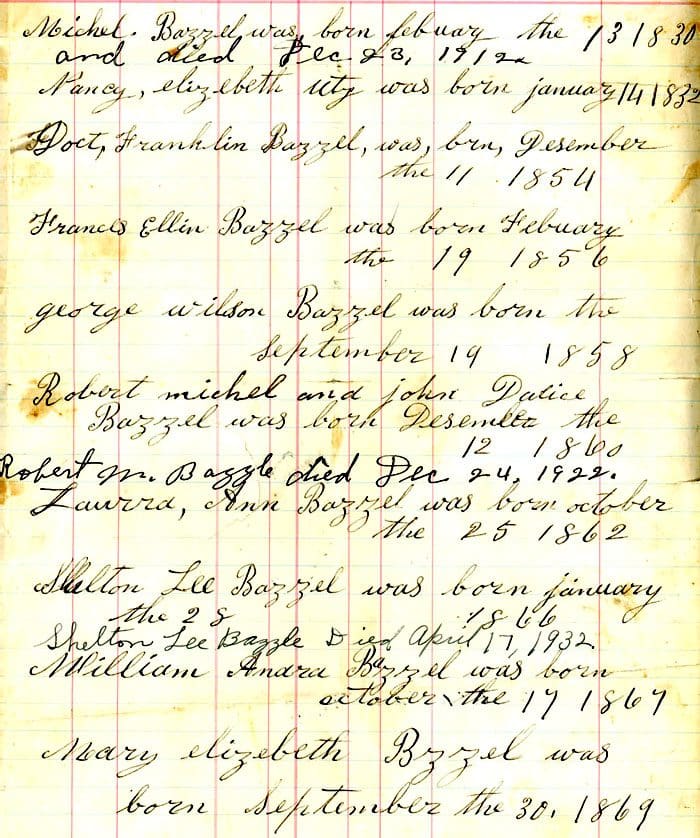 Michel. Bazzel was, born febuary the 13 1830
and died Dec. 23, 1912
Nancy, elizebeth Uty was born january 14 1832
Doct, Franklin Bazzel, was, brn, Desember
the 11 1854
Francis Ellin Bazzel was born Febuary
the 19 1856
george wilson Bazzel was born the
September 19 1858
Robert michel and john Datice
Bazzel was born Desember the
12 1860
Robert M. Bazzle died Dec 24, 1922.
Lawrra, Ann Bazzel was born october
the 25 1862
Shelton Lee Bazzel was born january
the 28 1866
Shelton Lee Bazzle Died April 17, 1932.
William Andra Bazzel was born
october the 17 1867
Mary elizebeth Bzzel was
born September the 30. 1869